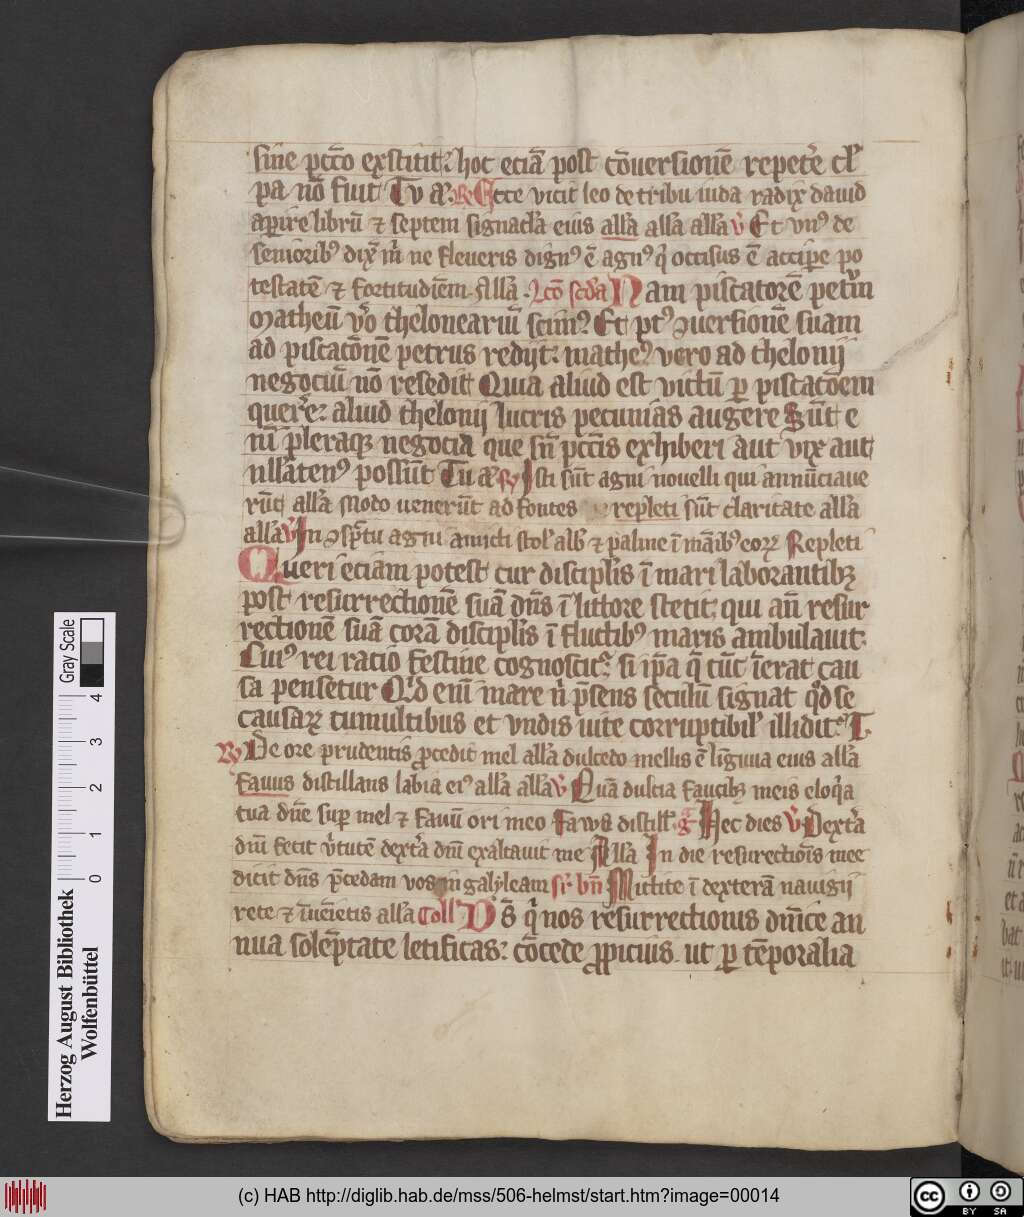 sine pctō exstitit: hoc eciā post cōuersionē repete̅ cl'
pa nō fuit Tu a'. R Ecce vicit leo de tribu iuda radix dauid
aperire librū ⁊ septem signacl'a eius all'a all'a all'a v Et vn⁹ de
seniorib⁹ dix̄ m̄ ne fleueris dign⁹ ē agn⁹ q̄ occisus ē accipe po
testatē ⁊ fortitudīem. All'a. Lcō scd'a Nam piscatorē petrū
Matheū v̊o theloneariū scim⁹. Et pt⁹ ꝯuersionē suam
ad piscacōnē petrus redijt: mathe⁹ vero ad thelonij
negociū nō resedit Quia aliud est victū ꝑ piscacōem
querēr: aliud thelonij lucris pecunias augere Sūt e
nī pleraqꝫ negocia que sn̄ pctīs exhiberi aut vix aut
nllāten⁹ possūt Tu a' R Isti sūt agni nouelli qui annūciaue
rūt all'a Modo uenerūt ad fontes repleti sūt claritate all'a
all'a v In ꝯsp̄tu agni amicti stol' alb' ⁊ palme ī māib⁹ eoꝝ Repleti
Queri eciam potest cur discipl'is ī mari laborantibꝫ
post resurrectionē suā dn̄s ī littore stetit: qui an̄ resur
rectionē suā corā discipl'is ī fluctib⁹ maris ambulauit:
Cui⁹ rei ratio festine cognoscit': si ip̄a q̄ tūc īerat cau
sa pensetur Qi̊d enī mare n̄ p̄sens seculū signat qd̊ se
causaꝝ tumultibus et vndis uite corruptibil' illidit: T
R De ore prudentis ꝓcedit mel all'a dulcedo mellis ē līgwua eius all'a
Fauus distillans labia ei⁹ all'a all'a v Quā dulcia faucibꝫ meis eloq̄a
tua dn̄e sup mel ⁊ fauū ori meo Fawꝰ distill' g' Hec dies v Dext'a
dn̄i fecit v̊tutē dext'a dn̄i exaltauit me All'a In die resurectiōis mee
dicit dn̄s p̄cedam vos in galyleam sr' bn̄ Mittite ī dexterā nauigij
rete ⁊ īueīetis all'a Coll' Ds̄ q̄ nos resurrectionis dn̄ice an
nua solēptate letificas: cōcede ꝓpicius. ut ꝑ tēporalia
Gray Scale
4
3
2
1
0
Herzog August Bibliothek
Wolfenbüttel
(c) HAB http://diglib.hab.de/mss/506-helmst/start.htm?image=00014
cc BY SA